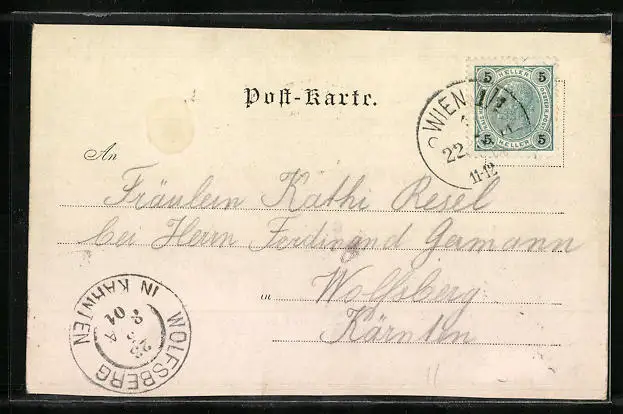 Post-Karte.
5 HELLER 5
5 HELLER 5
WIEN 1/1
22
11-12
An
Fräulein Käthi Resel
bei Herrn Ferdinand Germann
in Wolfsberg
Kärnten
WOLFSBERG IN KÄRNTEN
23 8 01